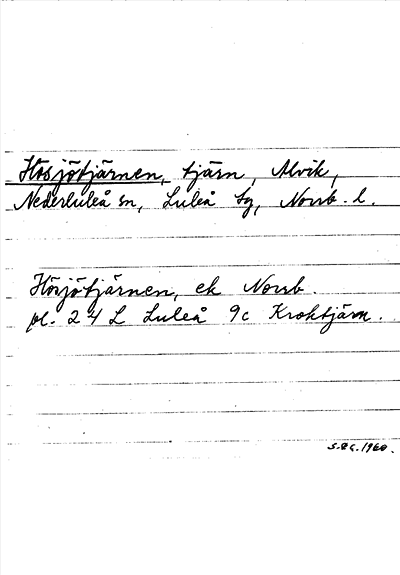 Hösjötjärnen, tjärn, Alvik,
Nederluleå sn, Luleå tg, Norrb. l.
Hösjötjärnen, ek Norrb.
pl. 24 L Luleå 9c Kroktjärn.
1960.